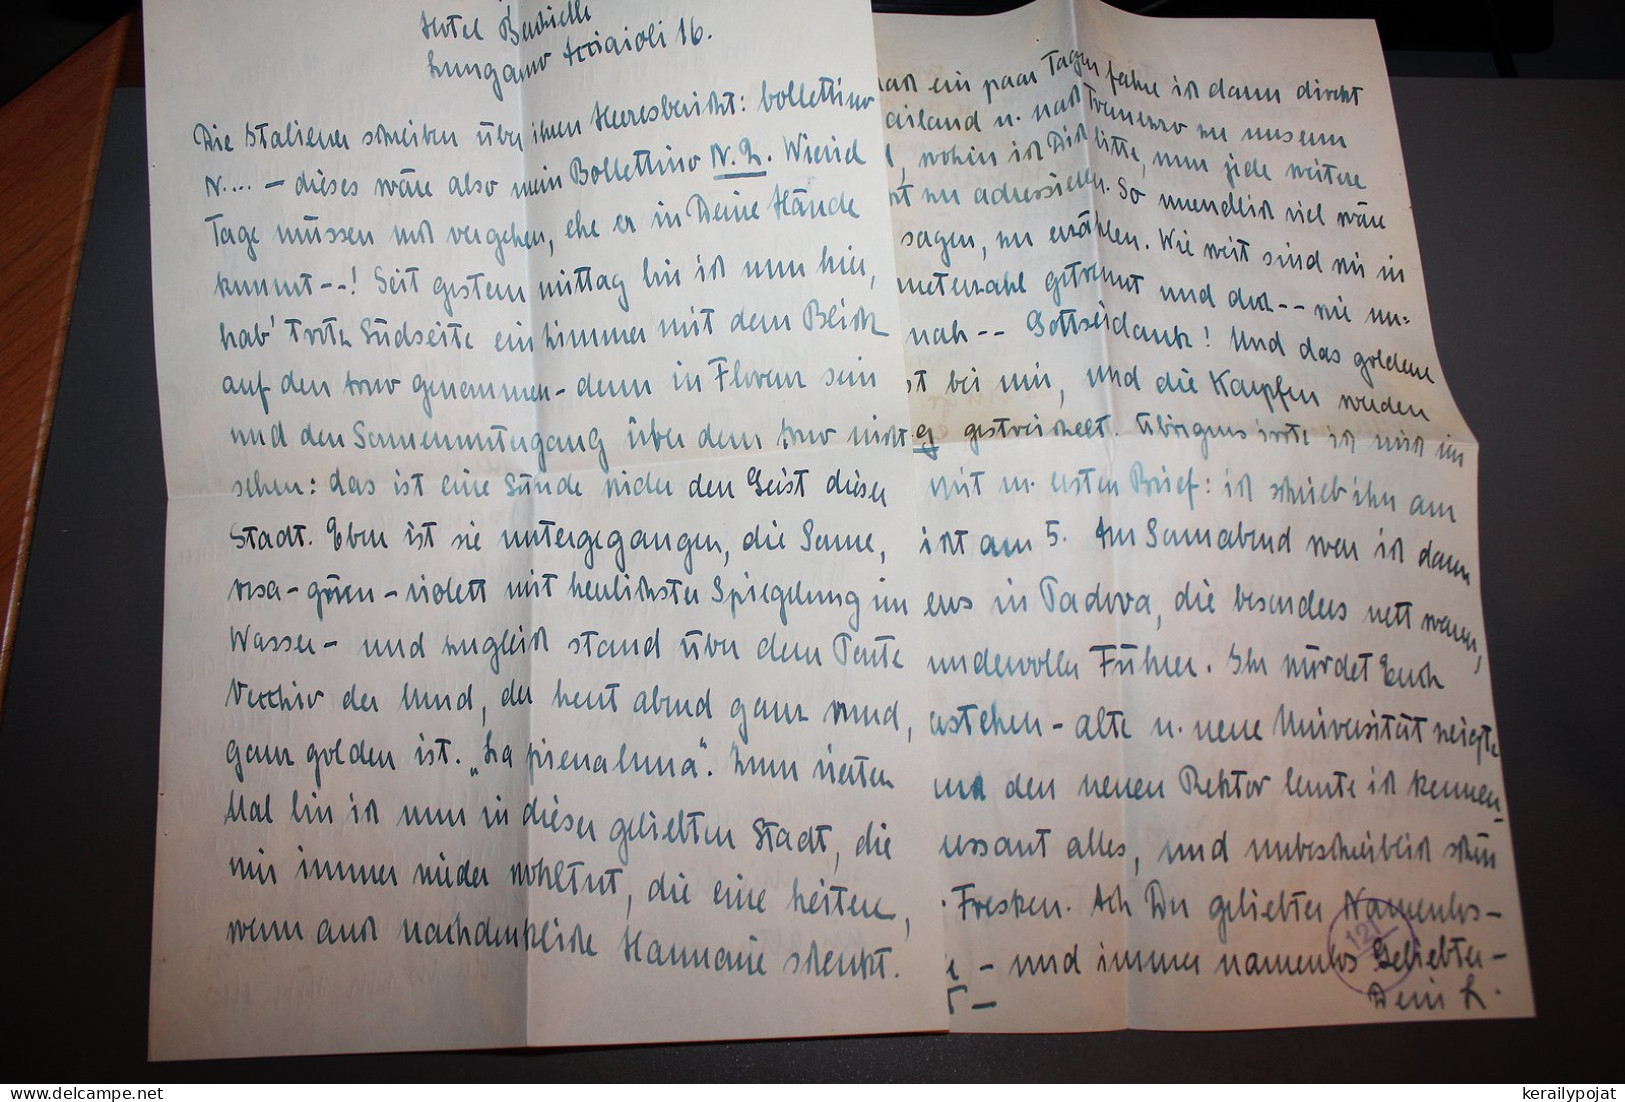 Hotel Berchielli
Lungarno Acciaioli 16.
Die Italiener schreiben über ihren Heeresbericht: bollettino
N.... – dieses wäre also mein Bollettino N. 2. Wieviel
Tage müssen noch vergehen, ehe er in Deine Hände
kommt--! Seit gestern mittag bin ich nun hier,
hab' trotz Südseite ein Zimmer mit dem Blick
auf den Arno genommen – denn in Florenz sein
und den Sonnenuntergang über dem Arno nicht
sehen: das ist eine Sünde wider den Geist dieser
Stadt. Eben ist sie untergegangen, die Sonne,
rosa-grün-violett mit herrlichster Spiegelung im
Wasser – und zugleich stand über dem Ponte
Vecchio der Mond, der heut abend ganz rund,
ganz golden ist. „La piena luna". Zum vierten
Mal bin ich nun in dieser geliebten Stadt, die
mir immer wieder wohltut, die eine heitere,
wenn auch nachdenkliche Harmonie schenkt.
ein paar Tagen fahre ich dann direkt
ailand u. nach Tremezzo zu unserm
, wohin ich Dich bitte, nun jede weitere
zu adressieren. So unendlich viel wäre
sagen, zu erzählen. Wie weit sind wir in
meterzahl getrennt und doch -- wie un=
nah -- Gottseidank! Und das goldene
st bei mir, und die Karpfen werden
g gestreichelt. Übrigens irrte ich mich im
mit m. ersten Brief: ich schrieb ihn am
icht am 5. Am Sonnabend war ich dann
ens in Padova, die besonders nett waren,
undervoller Führer. Ihr würdet Euch
erstehen – alte u. neue Universität zeigte
und den neuen Rektor lernte ich kennen,
ressant alles, und unbeschreiblich schön
. Fresken. Ach Du geliebter Namenlos-
– und immer namenlos Geliebter –
Dein L.
121
kerailypojat@delcampe.net